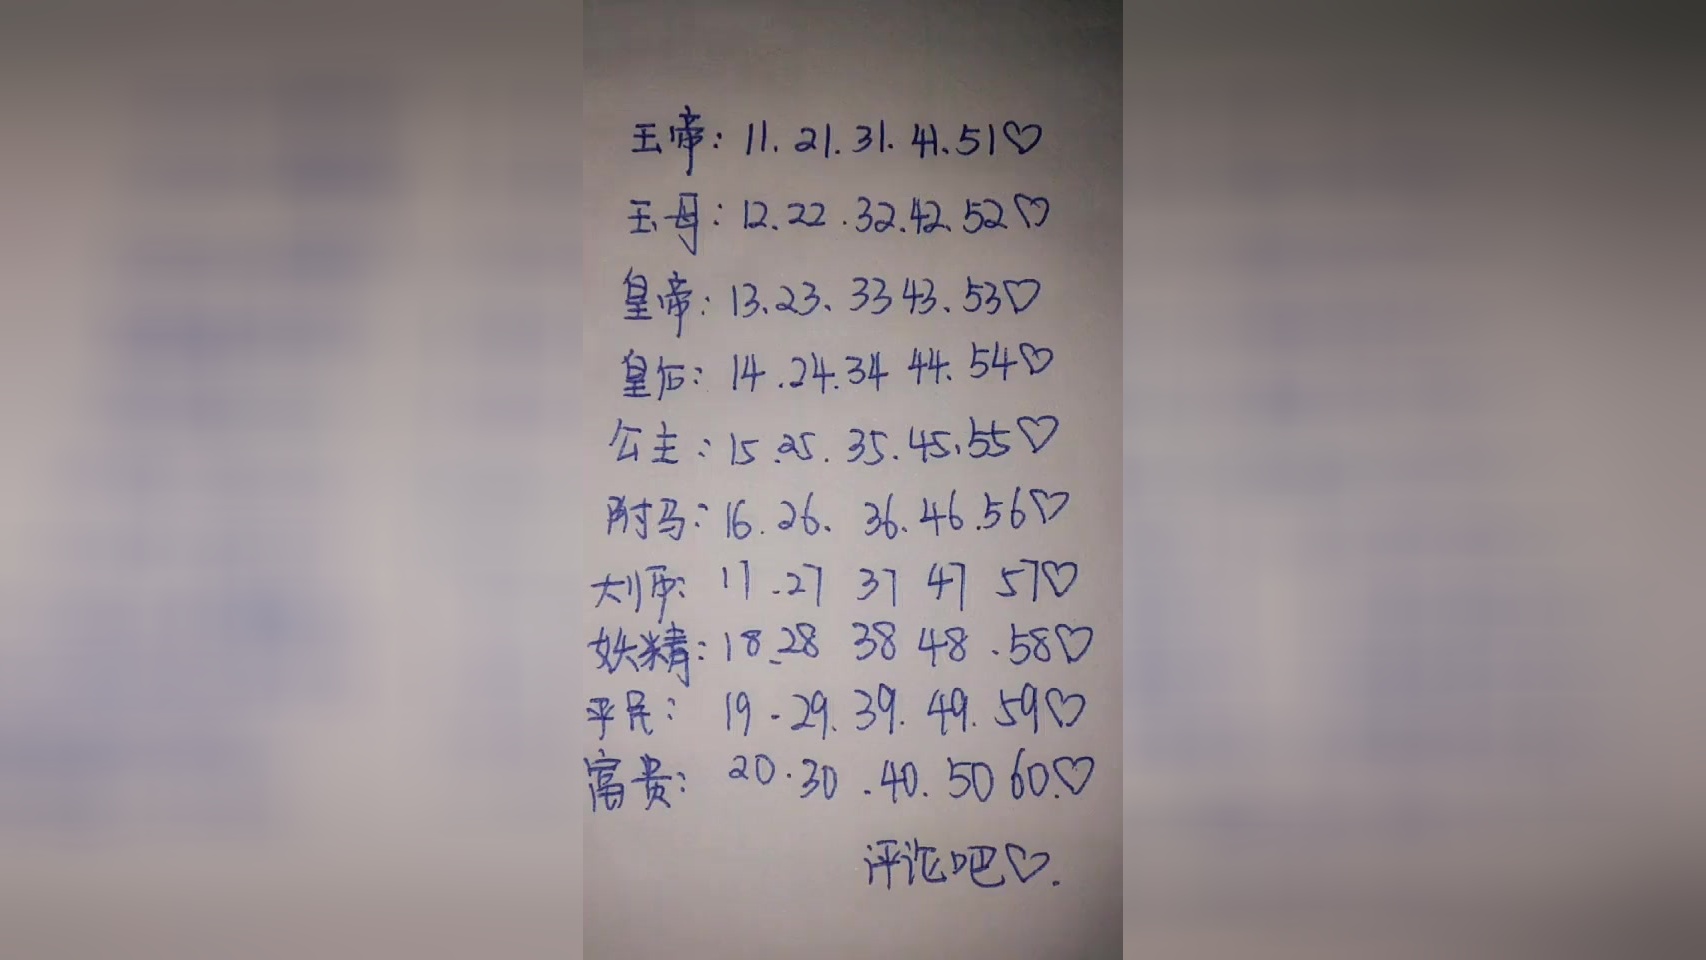 玉帝：11.21.31.41.51♡
玉母：12.22.32.42.52♡
皇帝：13.23.33 43.53♡
皇后：14.24.34 44.54♡
公主：15.25.35.45.55♡
附马：16.26.36.46.56♡
大师：17.27 37 47 57♡
妖精：18.28 38 48.58♡
平民：19.29.39.49.59♡
富贵：20.30.40.50 60.♡
评论吧♡.